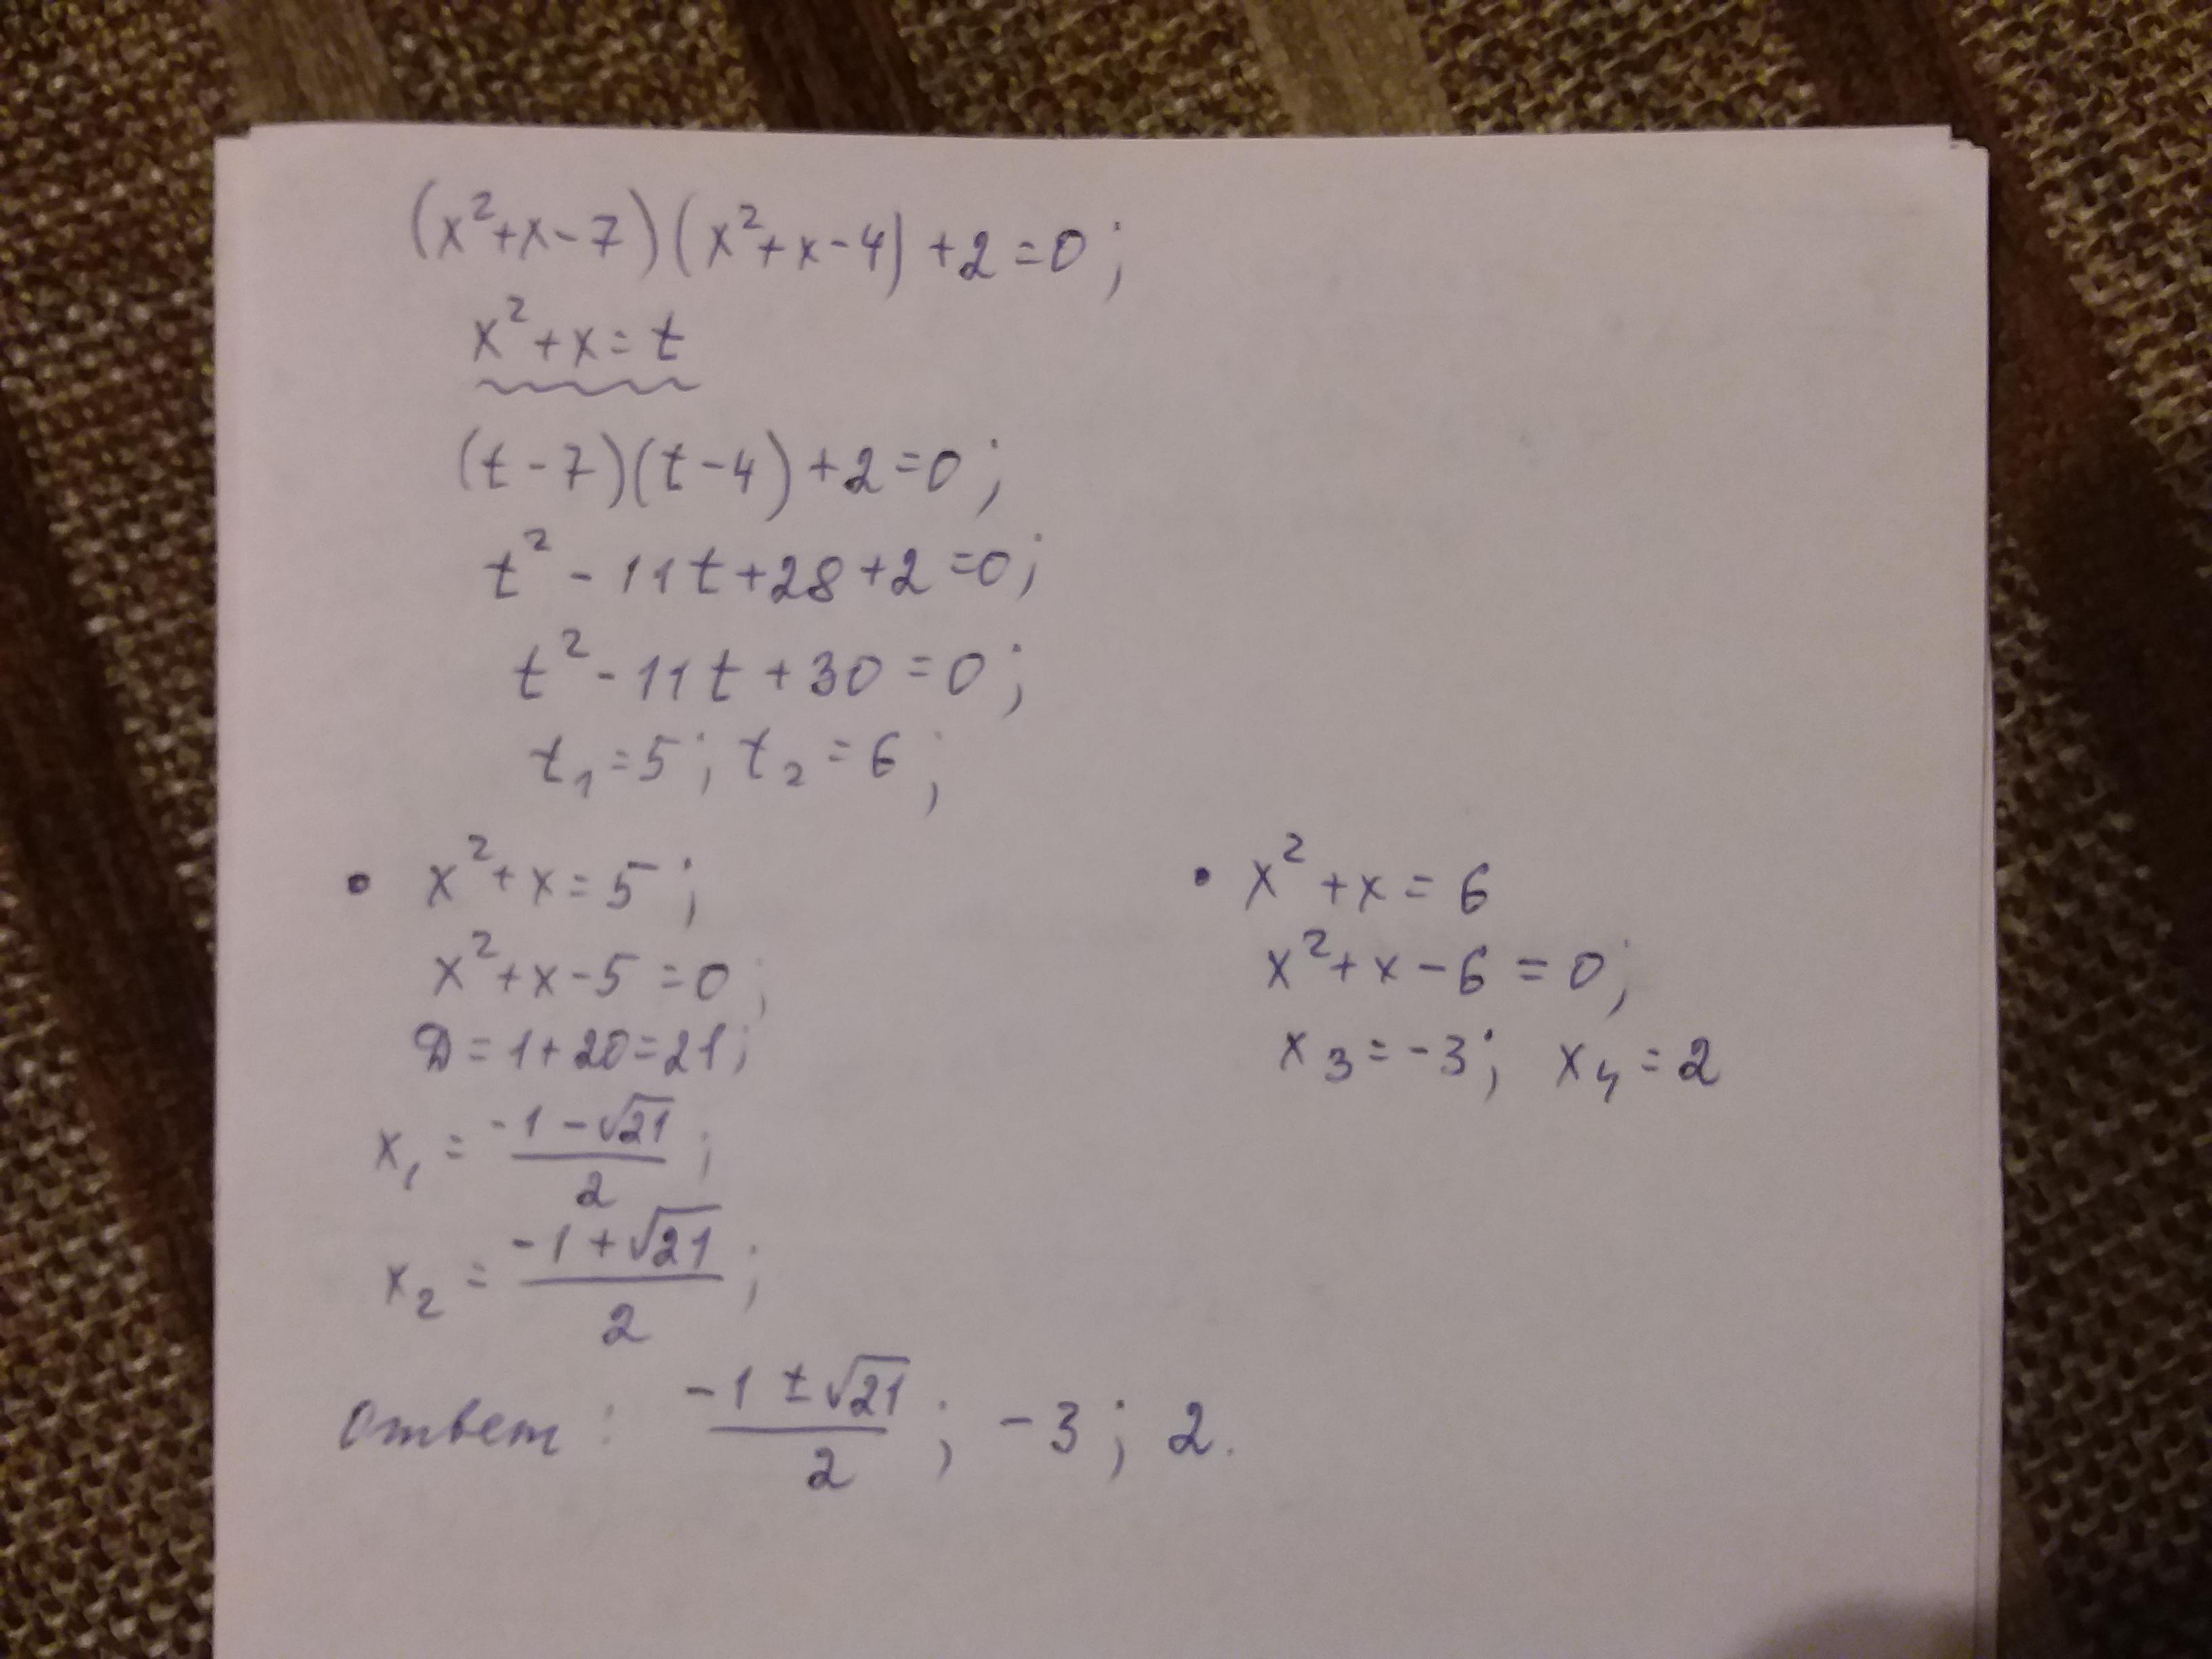 (x²+x-7)(x²+x-4)+2=0;
x²+x=t
(t-7)(t-4)+2=0;
t²-11t+28+2=0;
t²-11t+30=0;
t₁=5; t₂=6;
• x²+x=5;
x²+x-5=0;
D=1+20=21;
x₁ = (-1-√21)/2;
x₂ = (-1+√21)/2;
• x²+x=6
x²+x-6=0;
x₃=-3; x₄=2
Ответ: (-1±√21)/2; -3; 2.